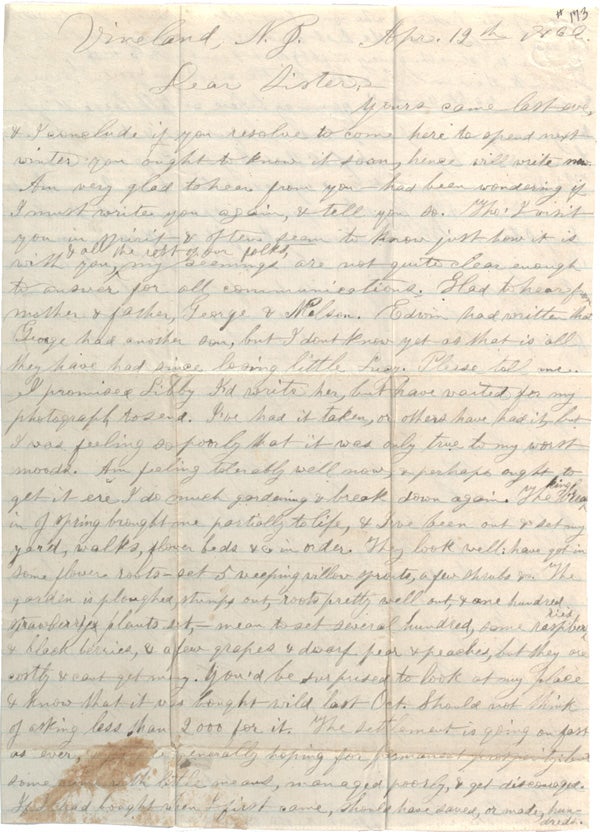 # 173
Vineland, N.J. Apr. 12th 186
Dear Sister,-
Yours came last eve,
& I conclude if you resolve to come here to spend next
winter you ought to know it soon, hence will write now.
Am very glad to hear from you - had been wondering if
I must write you again, & tell you so. Tho' I visit
you in spirit & often seem to know just how it is
with you, & all the rest of our folks, my seemings are not quite clear enough
to answer for all communications. Glad to hear from
mother & father, George & Nelson. Edwin had written that
George had another son, but I dont know yet as that is all
they have had since losing little Lucy. Please tell me.
I promised Libby I'd write her, but have waited for my
photograph to send. I've had it taken, or others have has it, but
I was feeling so poorly that it was only true to my worst
moods. Am feeling tolerably well now, & perhaps ought to
get it ere I do much gardening & break down again. The breaking
in of spring brought me partially to life, & I've been out & set my
yard, walks, flower beds &c in order. They look well: have got in
some flower roots - set 5 weeping willow sprouts, a few shrubs &c. The
garden is ploughed, stumps out, roots pretty well out, & one hundred
strawberry plants set, - mean to set several hundred, some raspberries
& black berries, & a few grapes & dwarf pear & peaches, but they are
costly & cant get many. You'd be surprised to look at my place
& know that it was bought wild last Oct. Should not think
of asking less than 2000 for it. The settlement is going on fast
as ever, generally hoping for permanent prosperity, but
some with little means, managed poorly, & get discouraged.
If I had bought when I first came, should have saved, or made, hundreds.